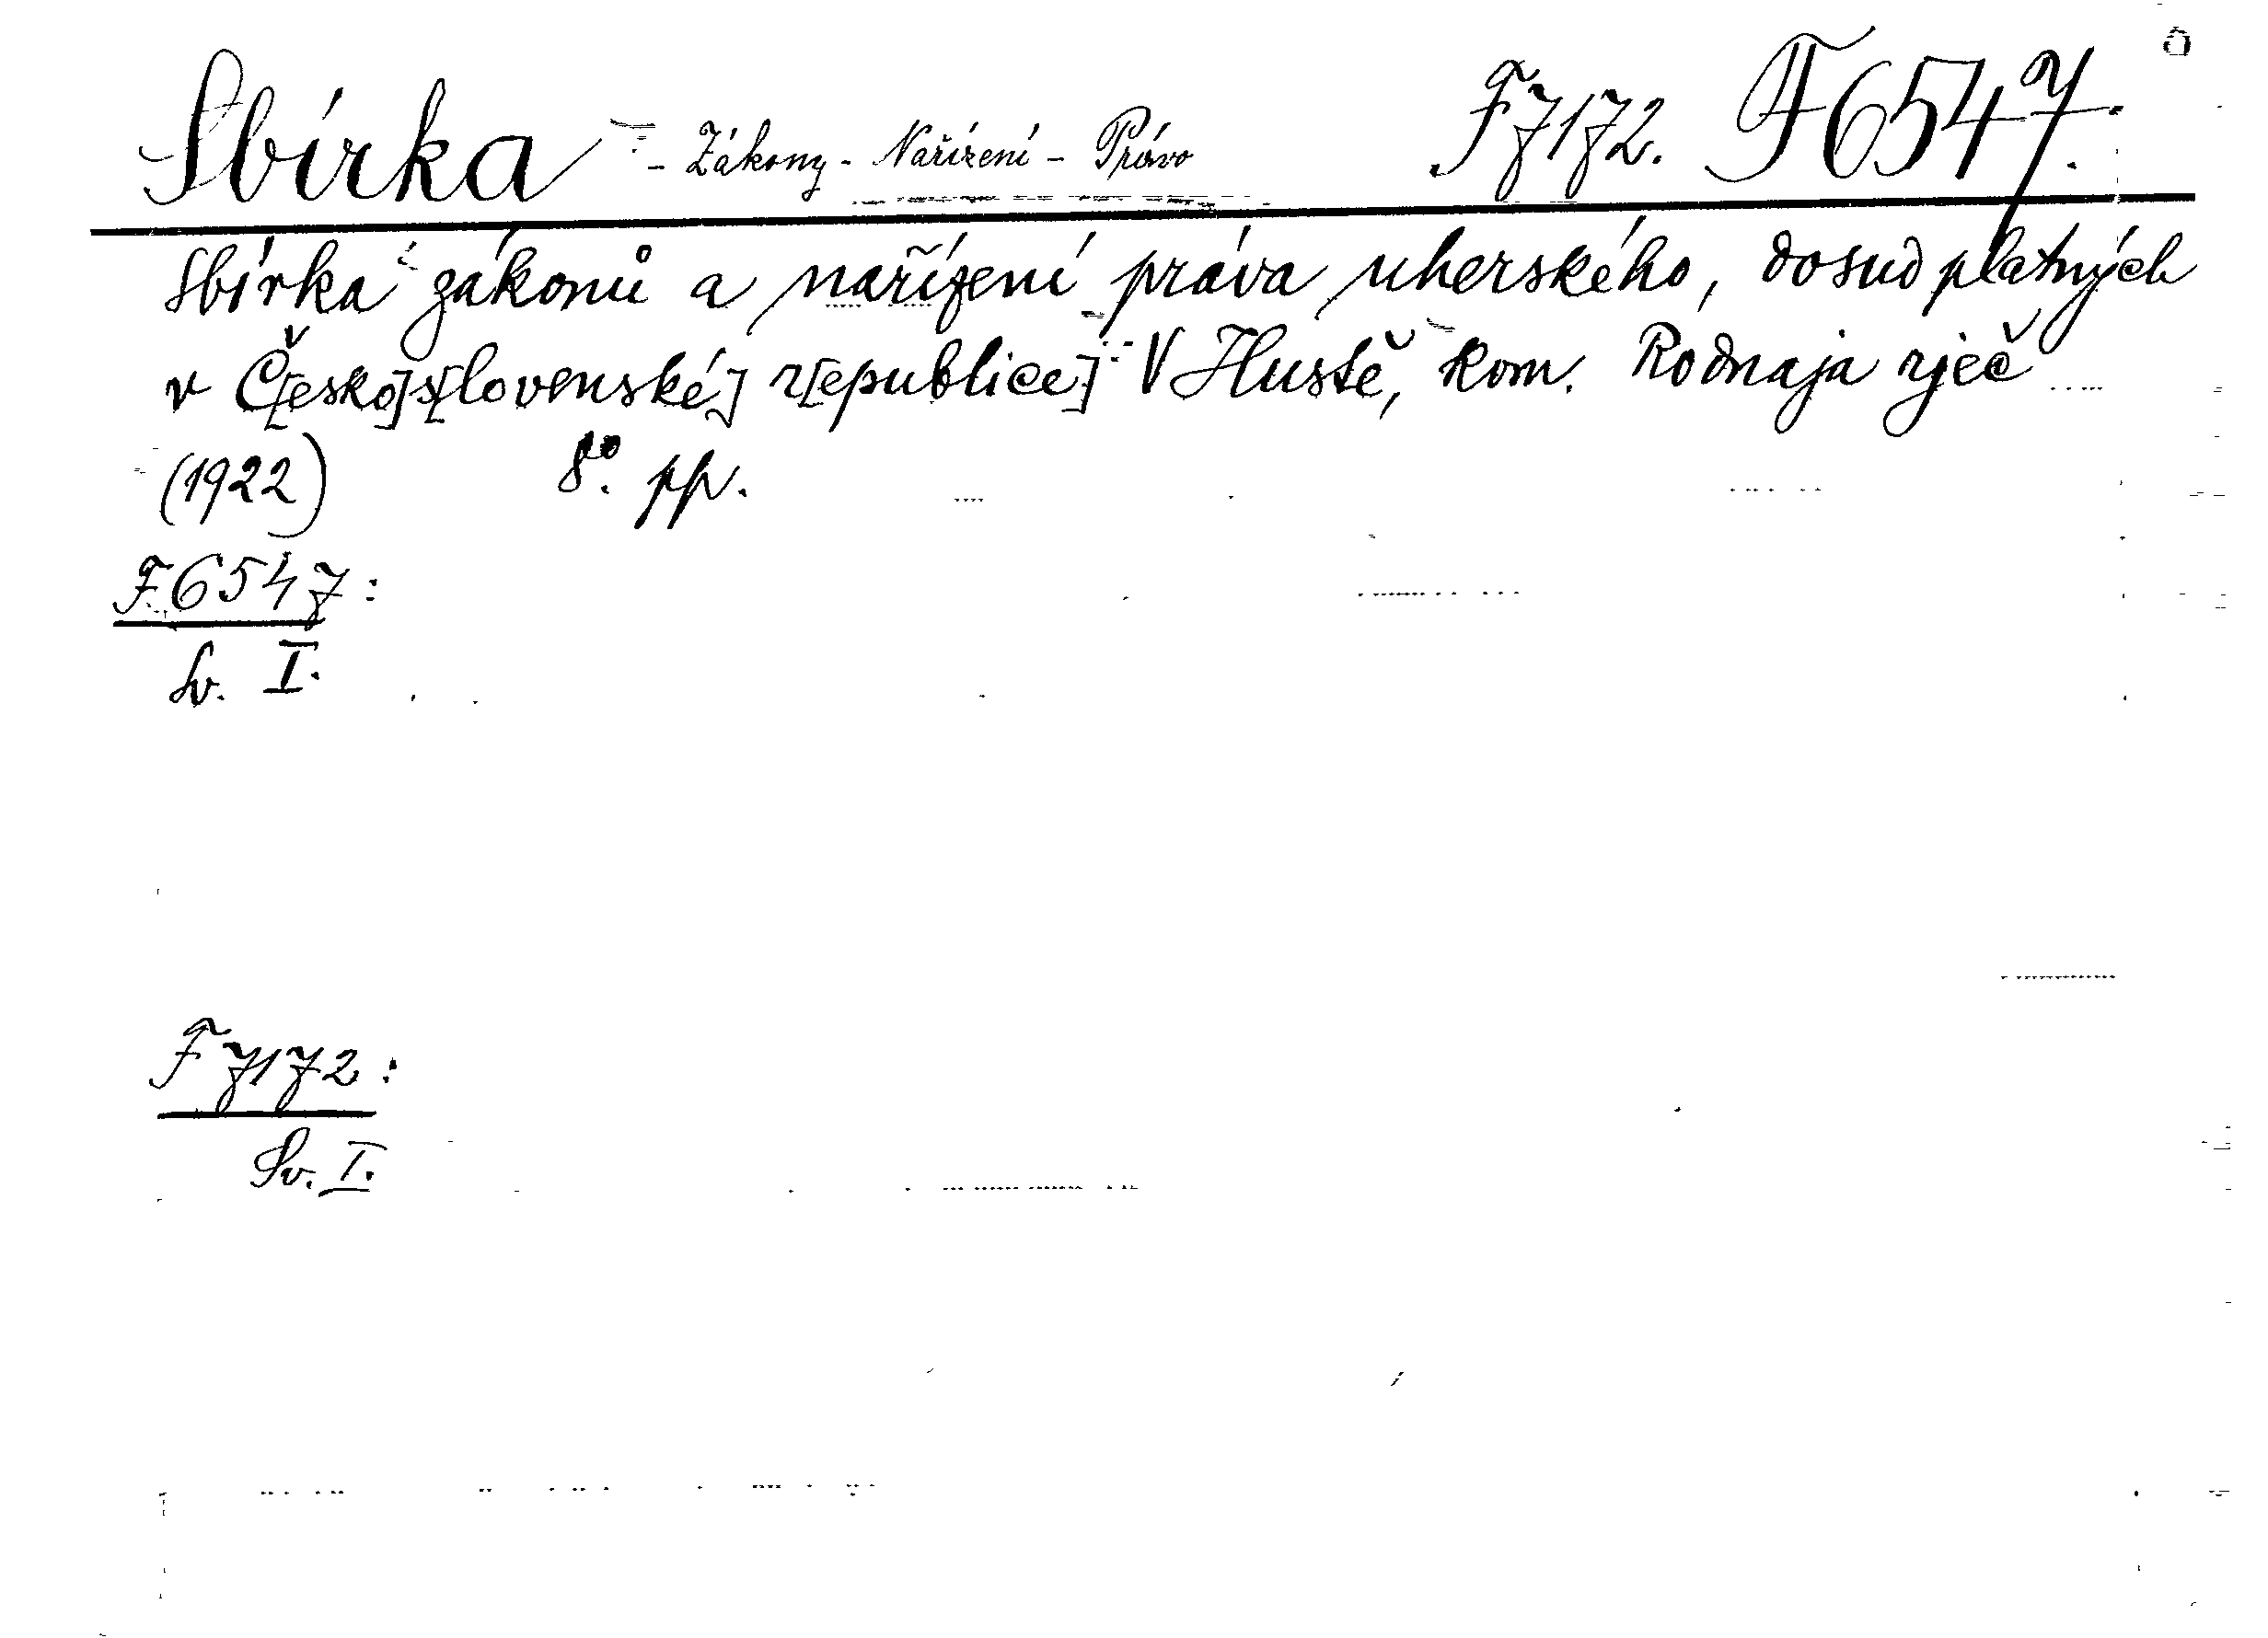 Sbírka - Zákony - Nařízení - Právo F7172. F6547.
Sbírka zákonů a nařízení práva uherského, dosud platných
v Č[esko]s[lovenské] r[epublice] V Hustě, kom. Rodnaja rječ
(1922) 8º. pp.
F6547:
Sv. I.
F7172:
Sv. I.